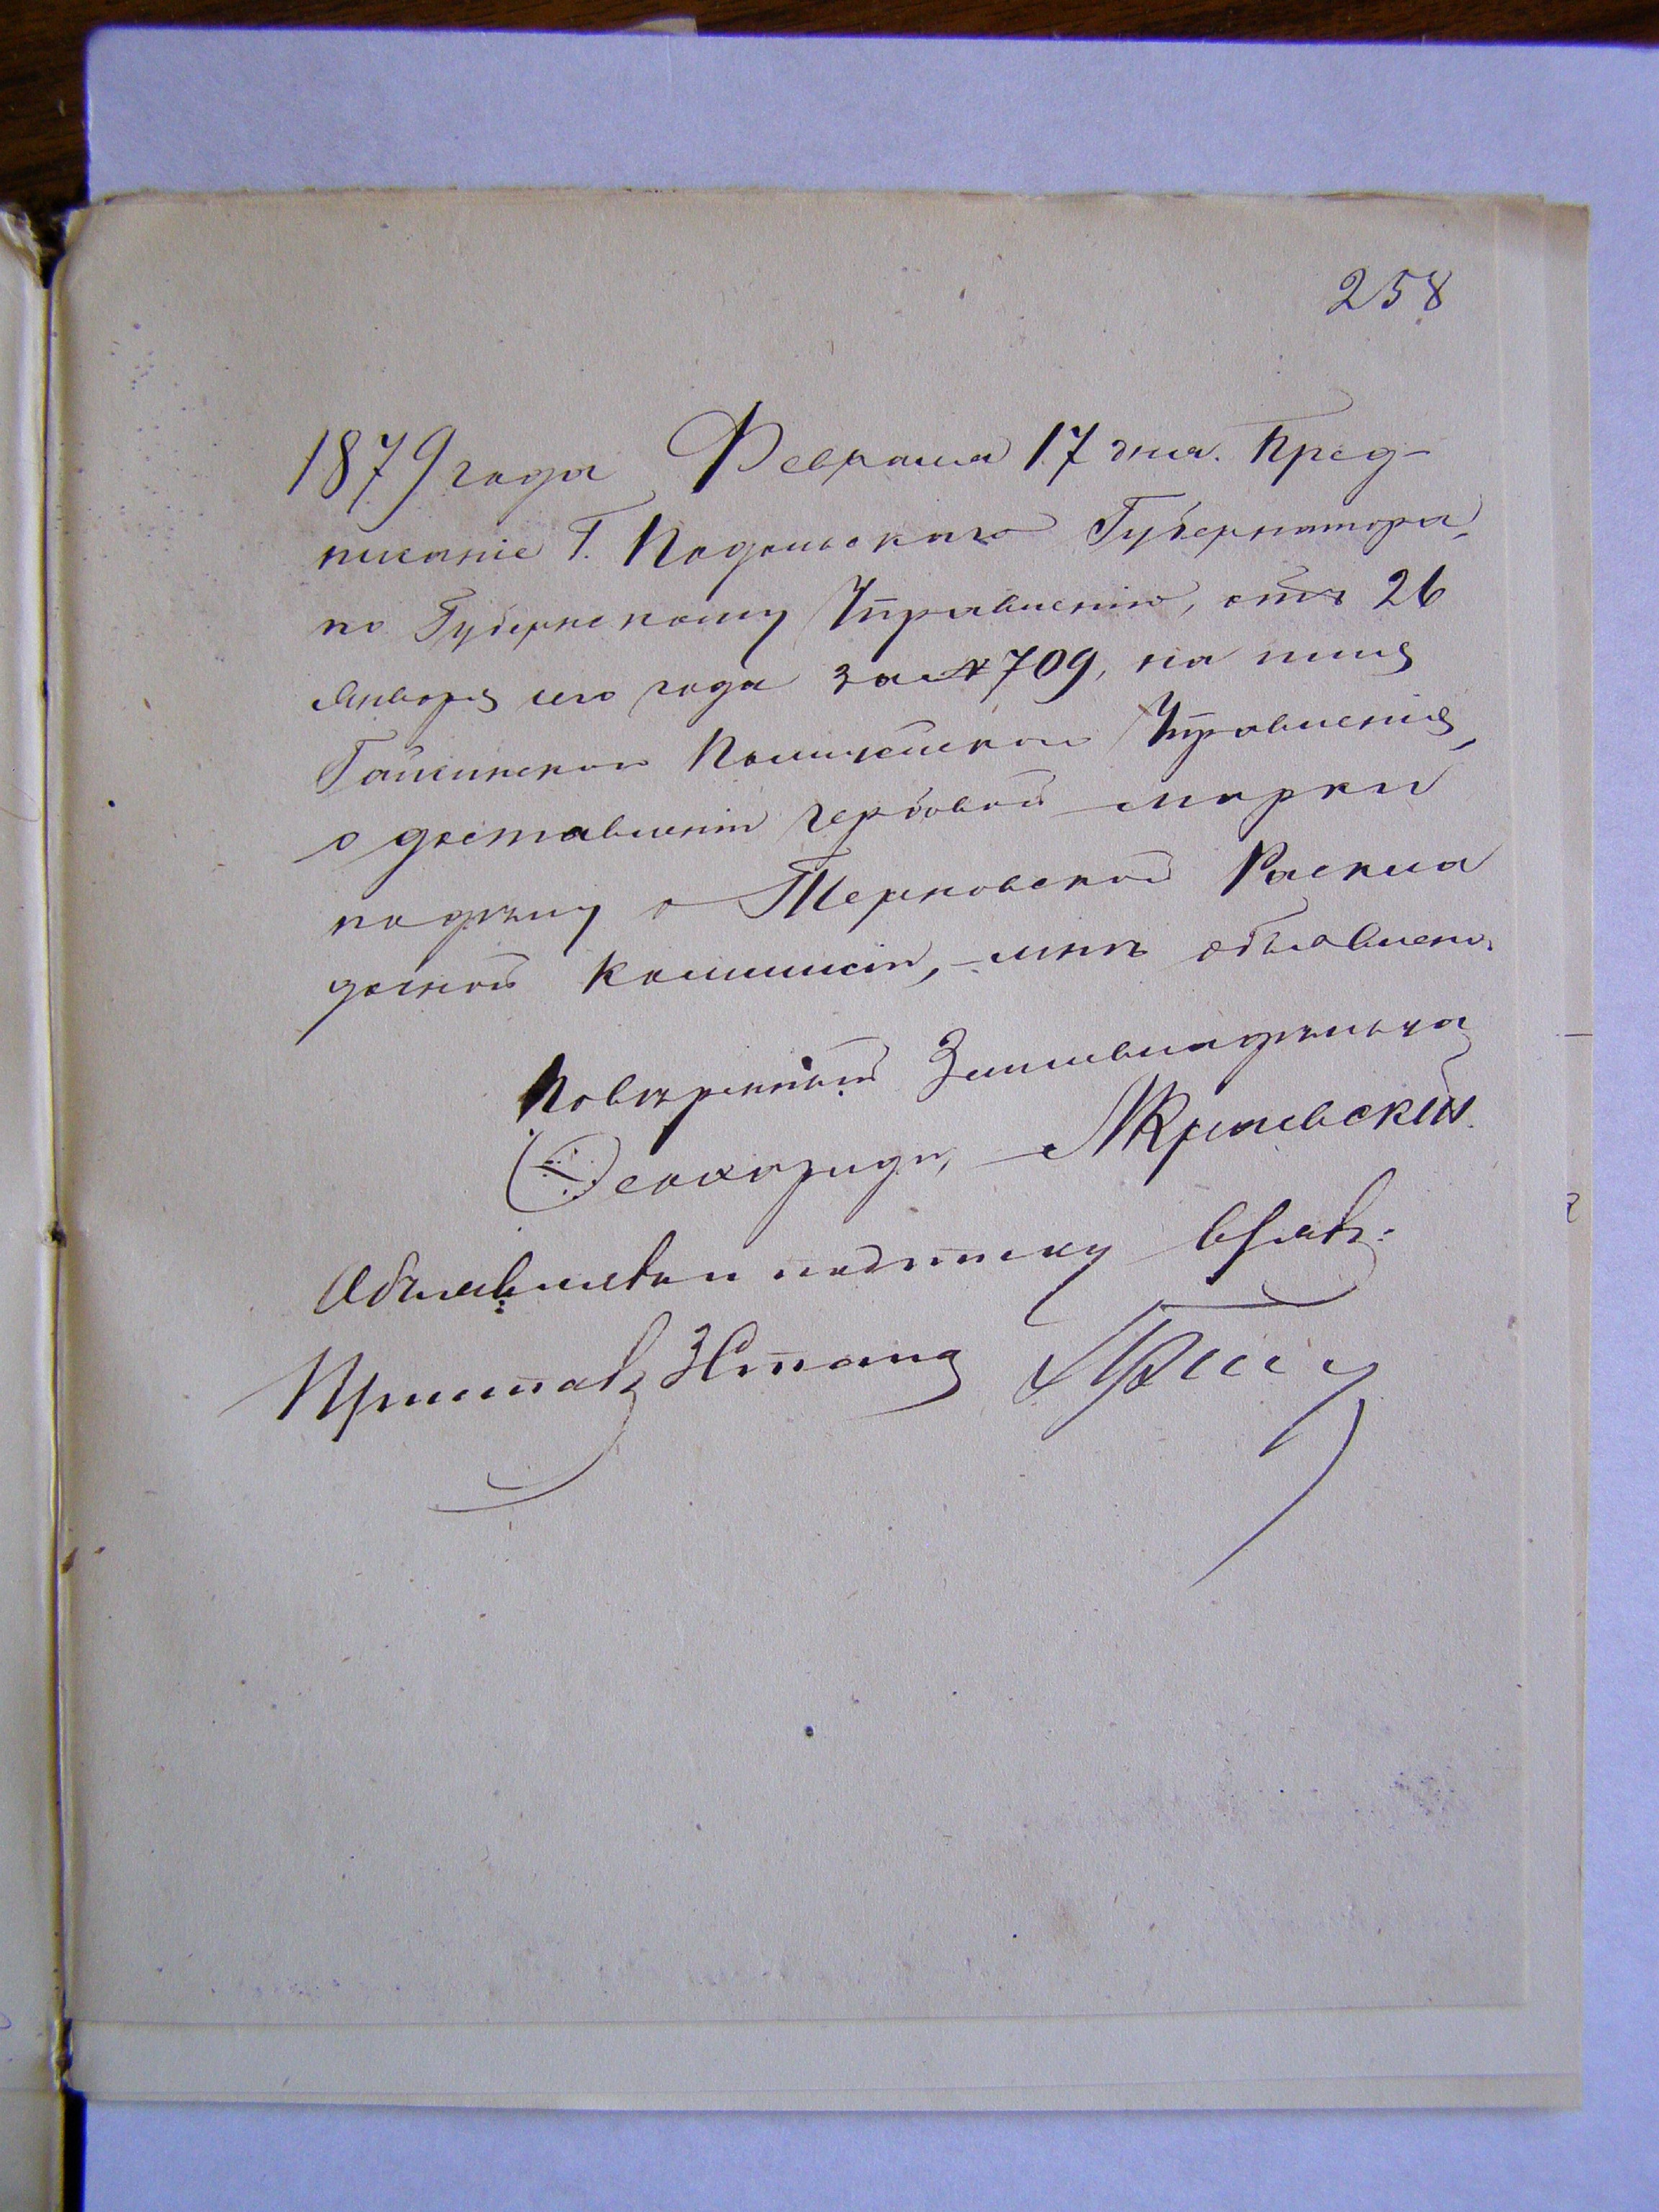 258
1879 года Февраля 17 дня. Пред-
писанiе Г. Подольскаго Губернатора,
по Губернскому Управленiю, отъ 26
Января сего года за № 709, на имя
Гайсинскаго Полицейскаго Управленiя,
о доставленiи гербовой марки
по дѣлу о Терновской Раскла
дочной Коммисiи, мнѣ объявлено.
Повѣренный Землевладѣльца
Объявлялъ и подписку
Приставъ 3 Стана